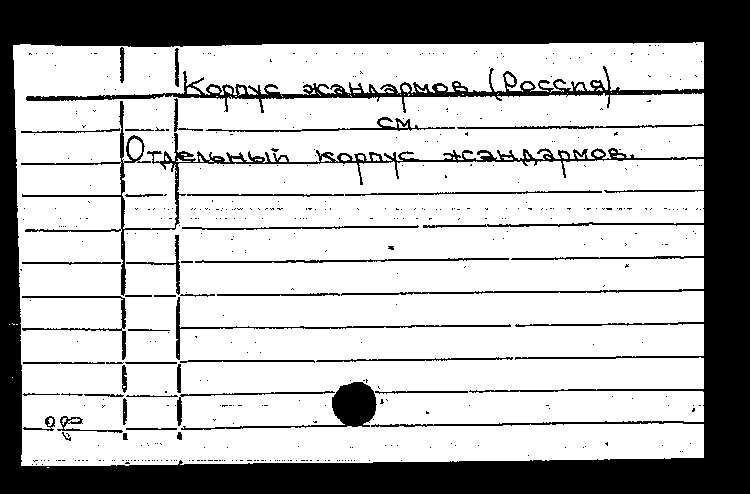 Корпус жандармов (Россия).
см.
Отдельный корпус жандармов.